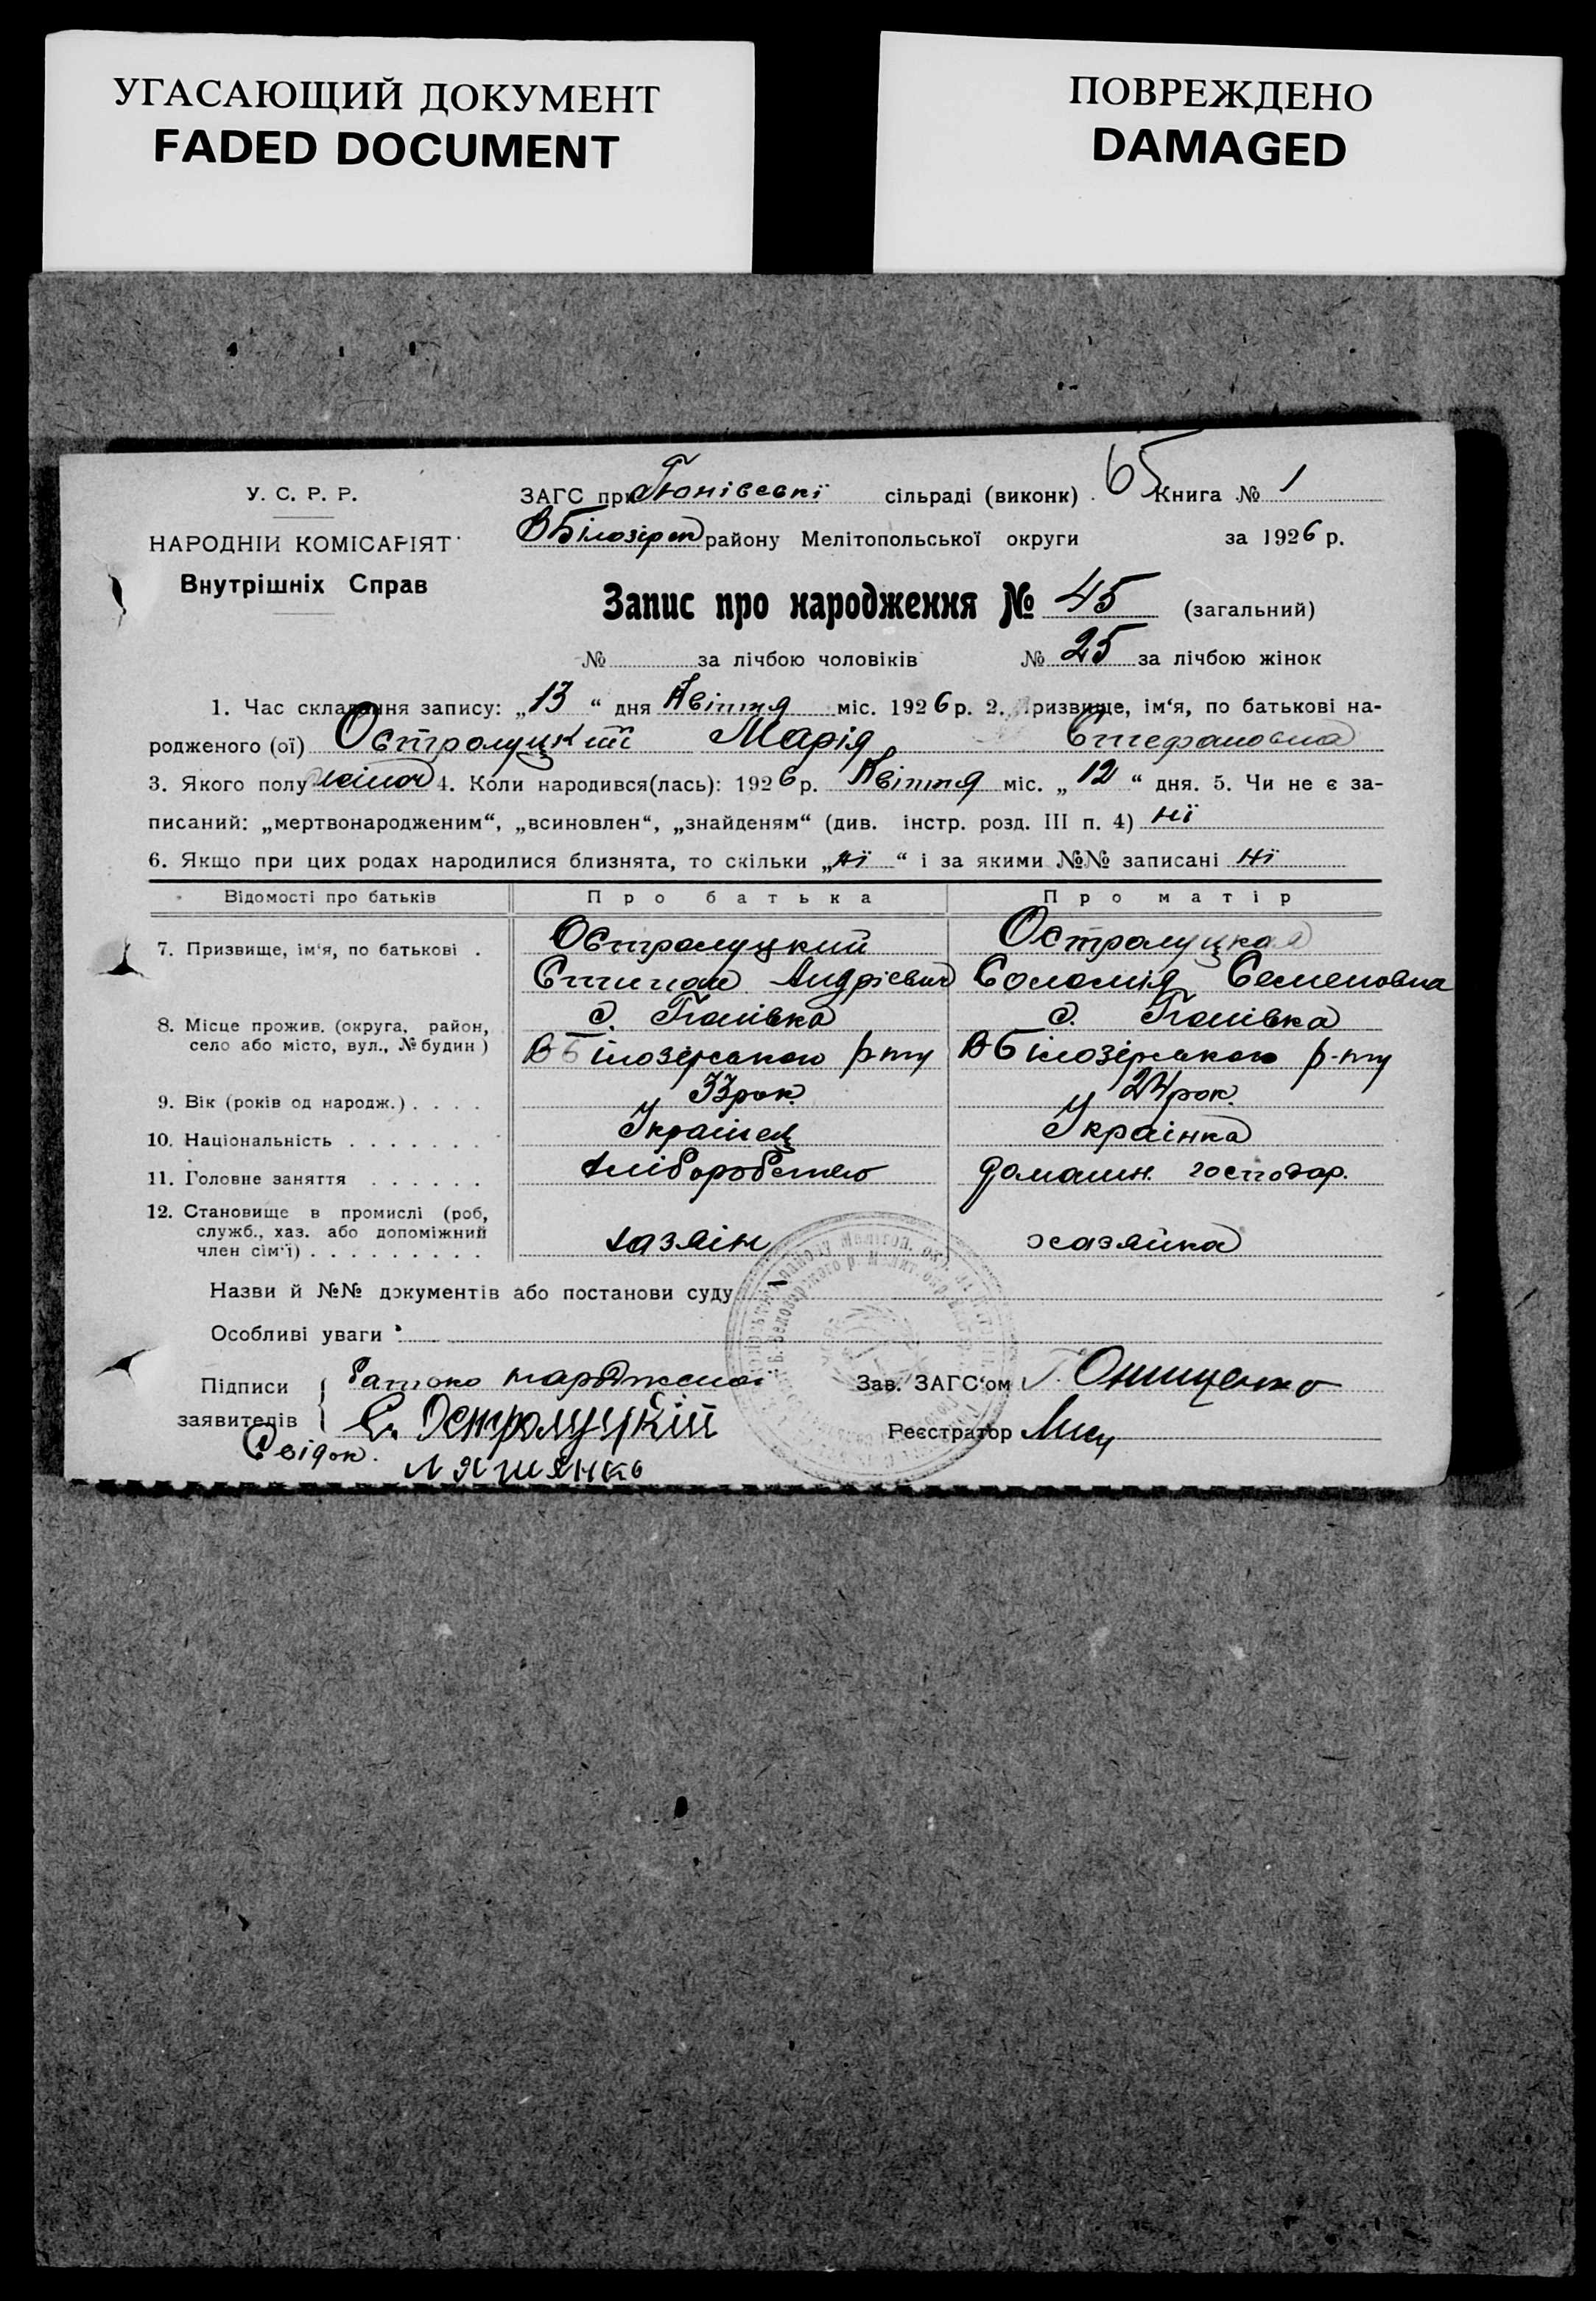 УГАСАЮЩИЙ ДОКУМЕНТ
FADED DOCUMENT
ПОВРЕЖДЕНО
DAMAGED
65
У. С. Р. Р.
НАРОДНІЙ КОМІСАРІЯТ
Внутрішніх Справ
ЗАГС при Гюнівські сільраді (виконк) . Книга № 1
ВБілозірск району Мелітопольської округи за 1926 р.
Запис про народження № 45 (загальний)
№ за лічбою чоловіків № 25 за лічбою жінок
1. Час складання запису: „13“ дня Квітня міс. 1926 р. 2. Призвище, ім‘я, по батькові на-
родженого (ої) Остролуцкий Марія Стефановна
3. Якого полу жіноч 4. Коли народився(лась): 1926 р. Квітня міс. „12“ дня. 5. Чи не є за-
писаний: „мертвонародженим“, „всиновлен“, „знайденям“ (див. інстр. розд. III п. 4) ні
6. Якщо при цих родах народилися близнята, то скільки „ні“ і за якими №№ записані ні
Відомості про батьків Про батька Про матір
7. Призвище, ім‘я, по батькові . Остролуцкий Остролуцкая
Степан Андрієвич Соломія Семеновна
8. Місце прожив. (округа, район, с. Гюнівка с. Гюнівка
село або місто, вул., № будин) ВБілозерського р-ну ВБілозерського р-ну
9. Вік (років од народж.) . . . . 33 рок. 24 рок.
10. Національність . . . . . . . Українец Українка
11. Головне заняття . . . . . . хліборобство домашн. господар.
12. Становище в промислі (роб,
служб., хаз. або допоміжний
член сім‘ї) . . . . . . . . . хазяін хазяйка
Назви й №№ документів або постанови суду
Особливі уваги
Підписи заявителів Батько нарожденой
С. Остролуцкій
Свідок. Ляшенко
Зав. ЗАГС‘ом Г. Онищенко
Реєстратор